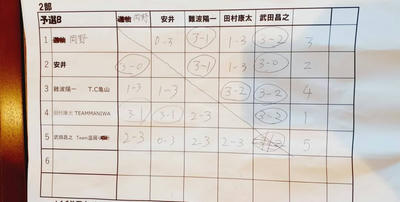 2部
予選B 岡野 安井 難波陽一 田村康太 武田昌之
1 岡野 0-3 3-1 1-3 3-2 3
2 安井 3-0 3-1 1-3 3-0 2
3 難波陽一 T.C亀山 1-3 1-3 3-2 3-2 4
4 田村康太 TEAMMANIWA 3-1 3-1 2-3 3-2 1
5 武田昌之 Team 2-3 0-3 2-3 2-3 5
6